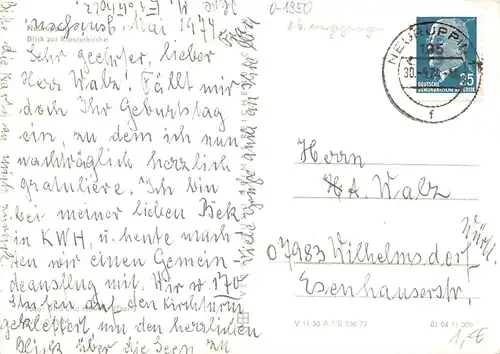 0-1950
8.6. eingegangen
Neuruppin
Blick zur Klosterkirche
Mai 1974
Sehr geehrter, lieber
Herr Walz! Fällt mir
doch Ihr Geburtstag
ein, zu dem ich nun
nachträglich herzlich
gratuliere. Ich bin
bei meiner lieben Bek
in KWH, u. heute mach
ten wir einen Gemein
deausflug mit. Wir sind 170
Stufen auf den Kirchturm
geklettert, um den herrlichen
Blick über die Seen zu
Viele Grüße auch an Ihre lb.
NEURUPPIN
195
30.-5.74
f
25
DEUTSCHE
DEMOKRATISCHE REPUBLIK
Herrn
H. A. Walz
07983 Wilhelmsdorf
Württ.
Esenhauserstr.
V 11 50 A 1/B 356 73
01 04 11 005
1,-€